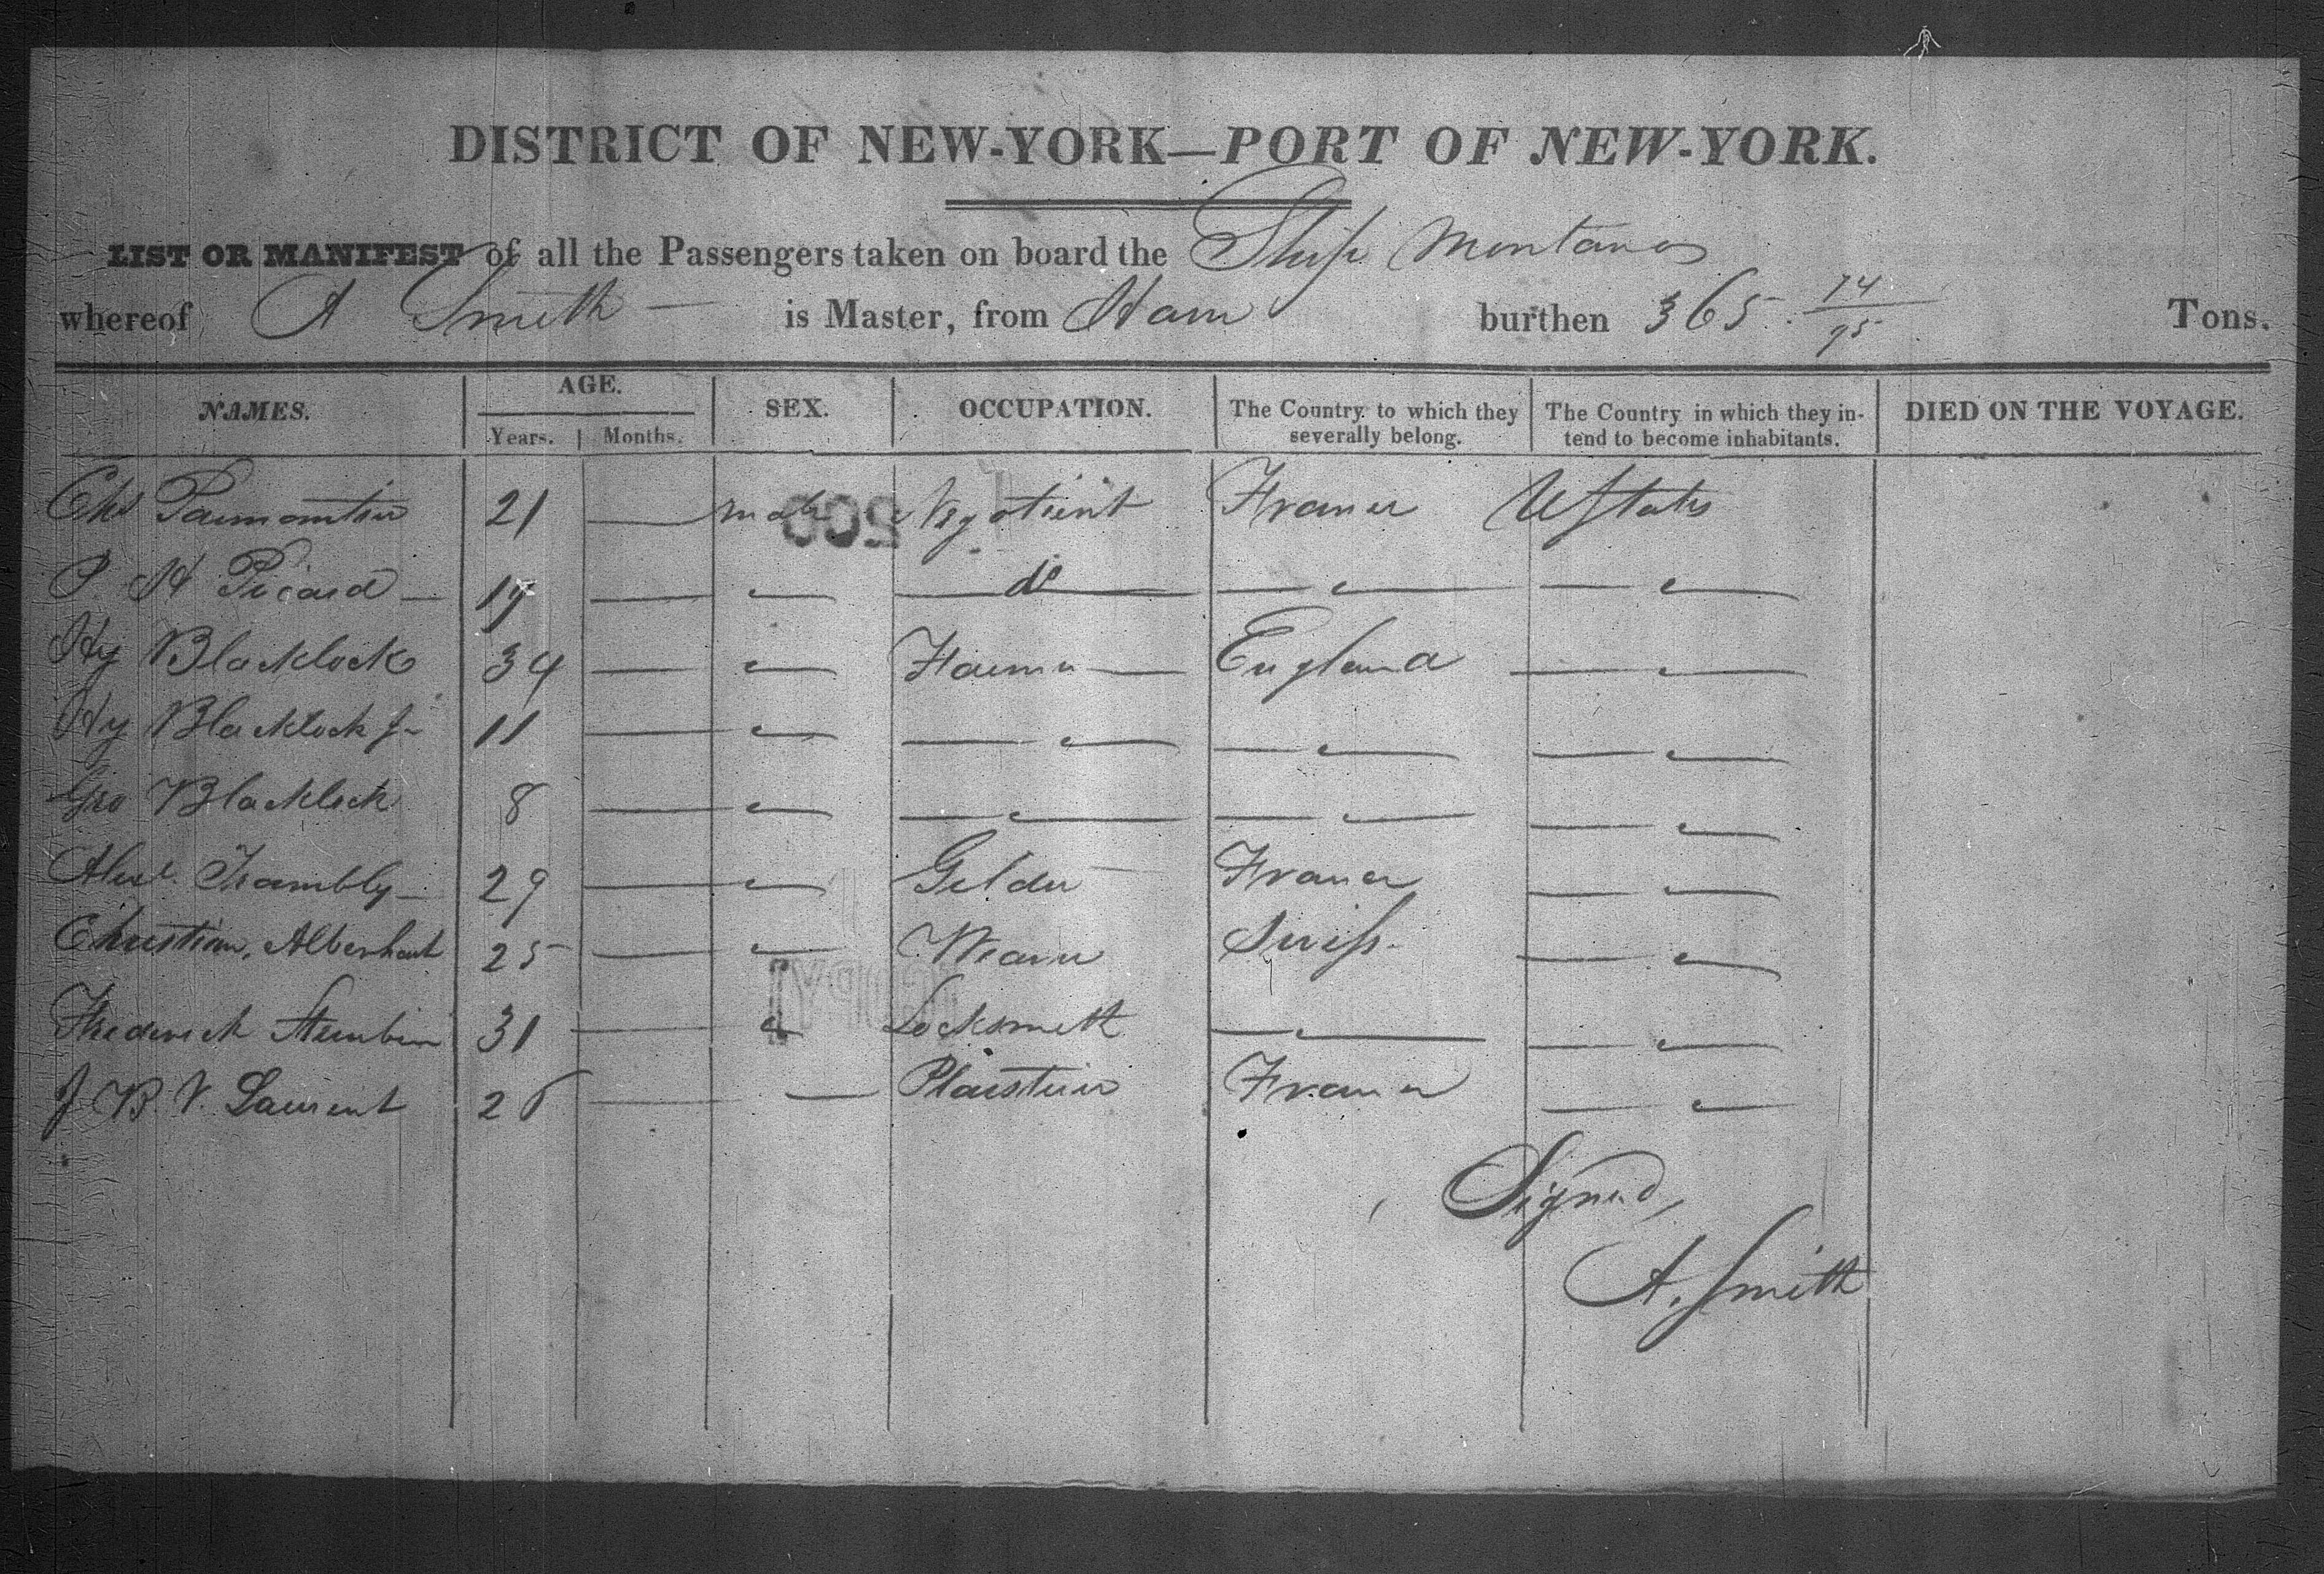 DISTRICT OF NEW-YORK—PORT OF NEW-YORK.
LIST OR MANIFEST of all the Passengers taken on board the Ship Montano
whereof A Smith — is Master, from Havre burthen 365 74/95 Tons.
NAMES. AGE. SEX. OCCUPATION. The Country to which they severally belong. The Country in which they intend to become inhabitants. DIED ON THE VOYAGE.
Years. Months.
Chs 21 — male Negotient France UStates
P. H Picard — — — do — —
Hy Blacklock 34 — — Farmer — England — —
Hy Blacklock Jr 11 — — — — —
Geo Blacklock 8 — — — — —
Alexr. Trambly — 29 — — Gilder France — —
Christian 25 — — Weaver Swiss — —
Frederick 31 — — Locksmith — —
J B. V. Laurent — — France — —
Signed,
A. Smith
COPY